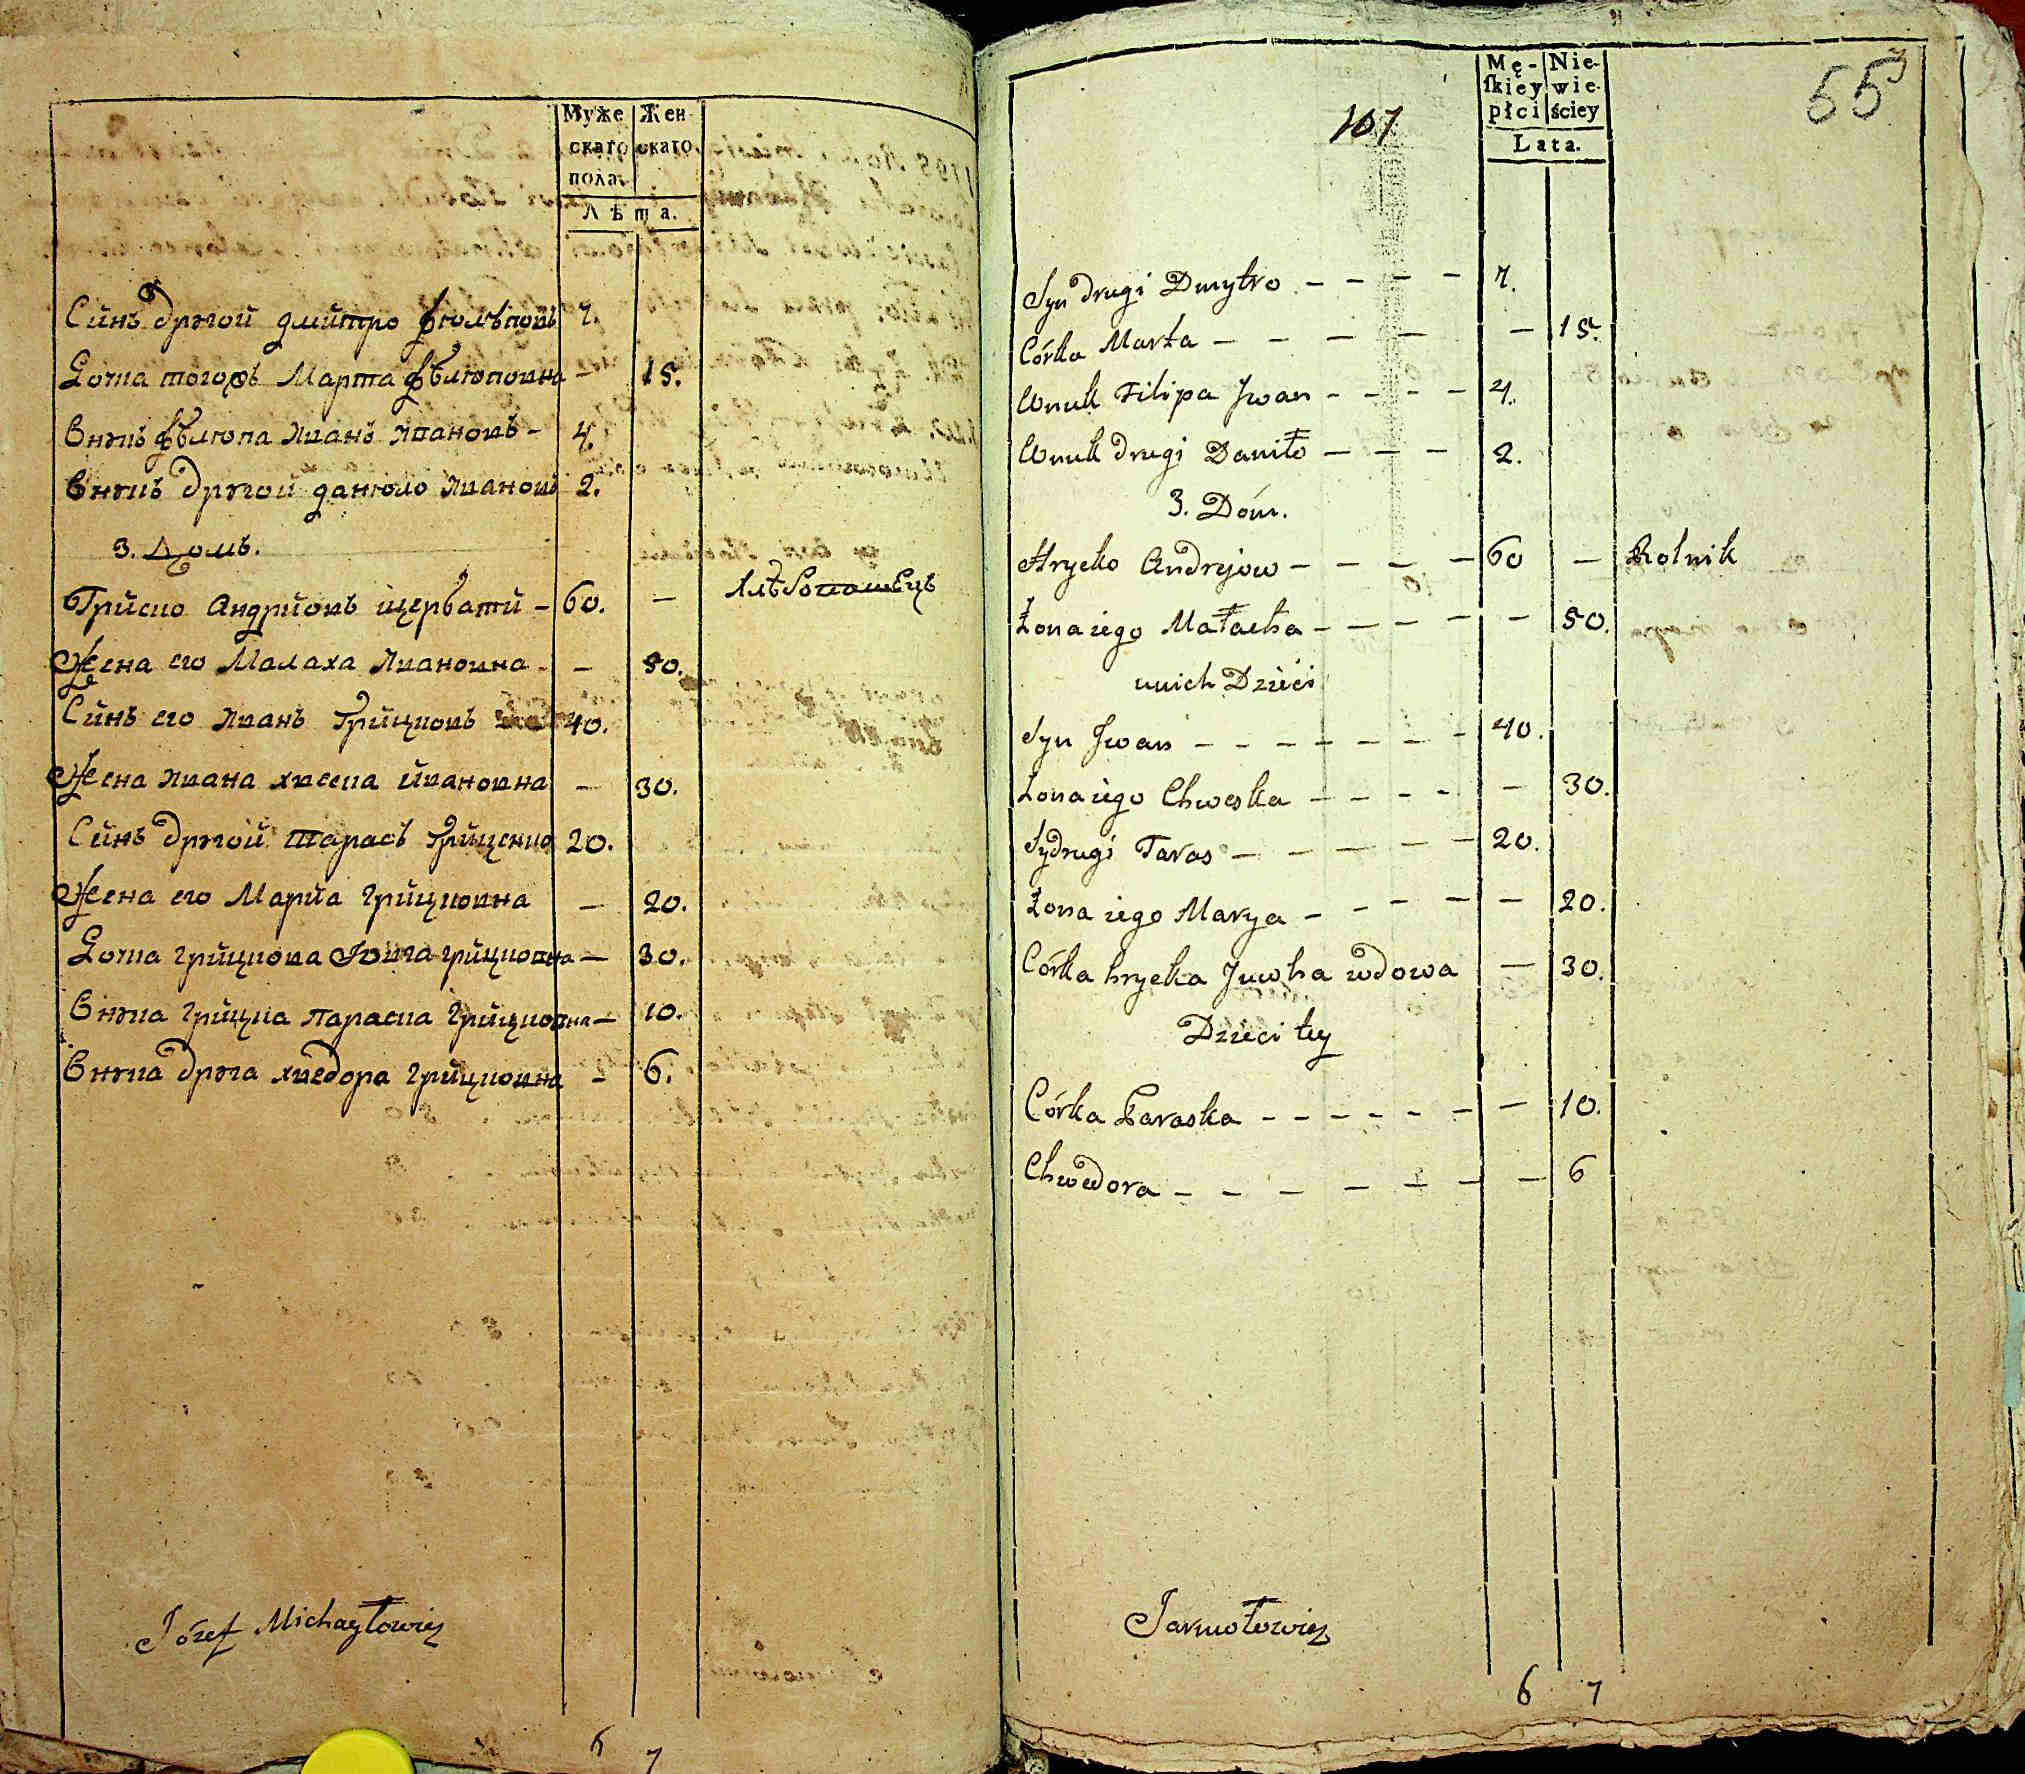 Муже Жен
скаго скаго
пола.
Лѣта.
Синъ другой дмитро филѣповъ 7.
Дочка тогожъ Марта филюповна - 15.
Внукъ филюпа Иванъ Ивановъ - 4.
Внукъ другой данюло Ивановъ 2.
3. Домъ.
Грицко Андрийовъ щербатй - 60. - хлѣбопашецъ
Жена его Малаха Ивановна - - 50.
Синъ его Иванъ Грицковъ 40.
Жена Ивана хвеска Ивановна - 30.
Синъ другой тарасъ Гриценко 20.
Жена его Марйа Грицковна - 20.
Дочка грицкова Ювга грицковна - 30.
Внука грицка параска Грицковна - 10.
Внука друга хведора грицковна - 6.
Józef Michayłowicz
6 7
Mę- Nie-
ſkiey wie-
płci ściey
Lata.
107
55
Syn drugi Dmytro - - - - 7.
Córka Marta - - - - - 15.
Wnuk Filipa Jwan - - - - 4.
Wnuk drugi Daniło - - - 2.
3. Dóm.
Hrycko Andrejow - - - - 60 - Rolnik
Żona iego Małacha - - - - - 50.
unich Dzieci
Syn Jwan - - - - - - - 40.
Żona iego Chweska - - - - - 30.
Sydrugi Taras - - - - - 20.
Żona iego Marya - - - - - 20.
Córka hrycka Juwha wdowa - 30.
Dzieci tey
Córka Paraska - - - - - - - 10.
Chwedora - - - - - - - 6
Jarmołowicz
6 7